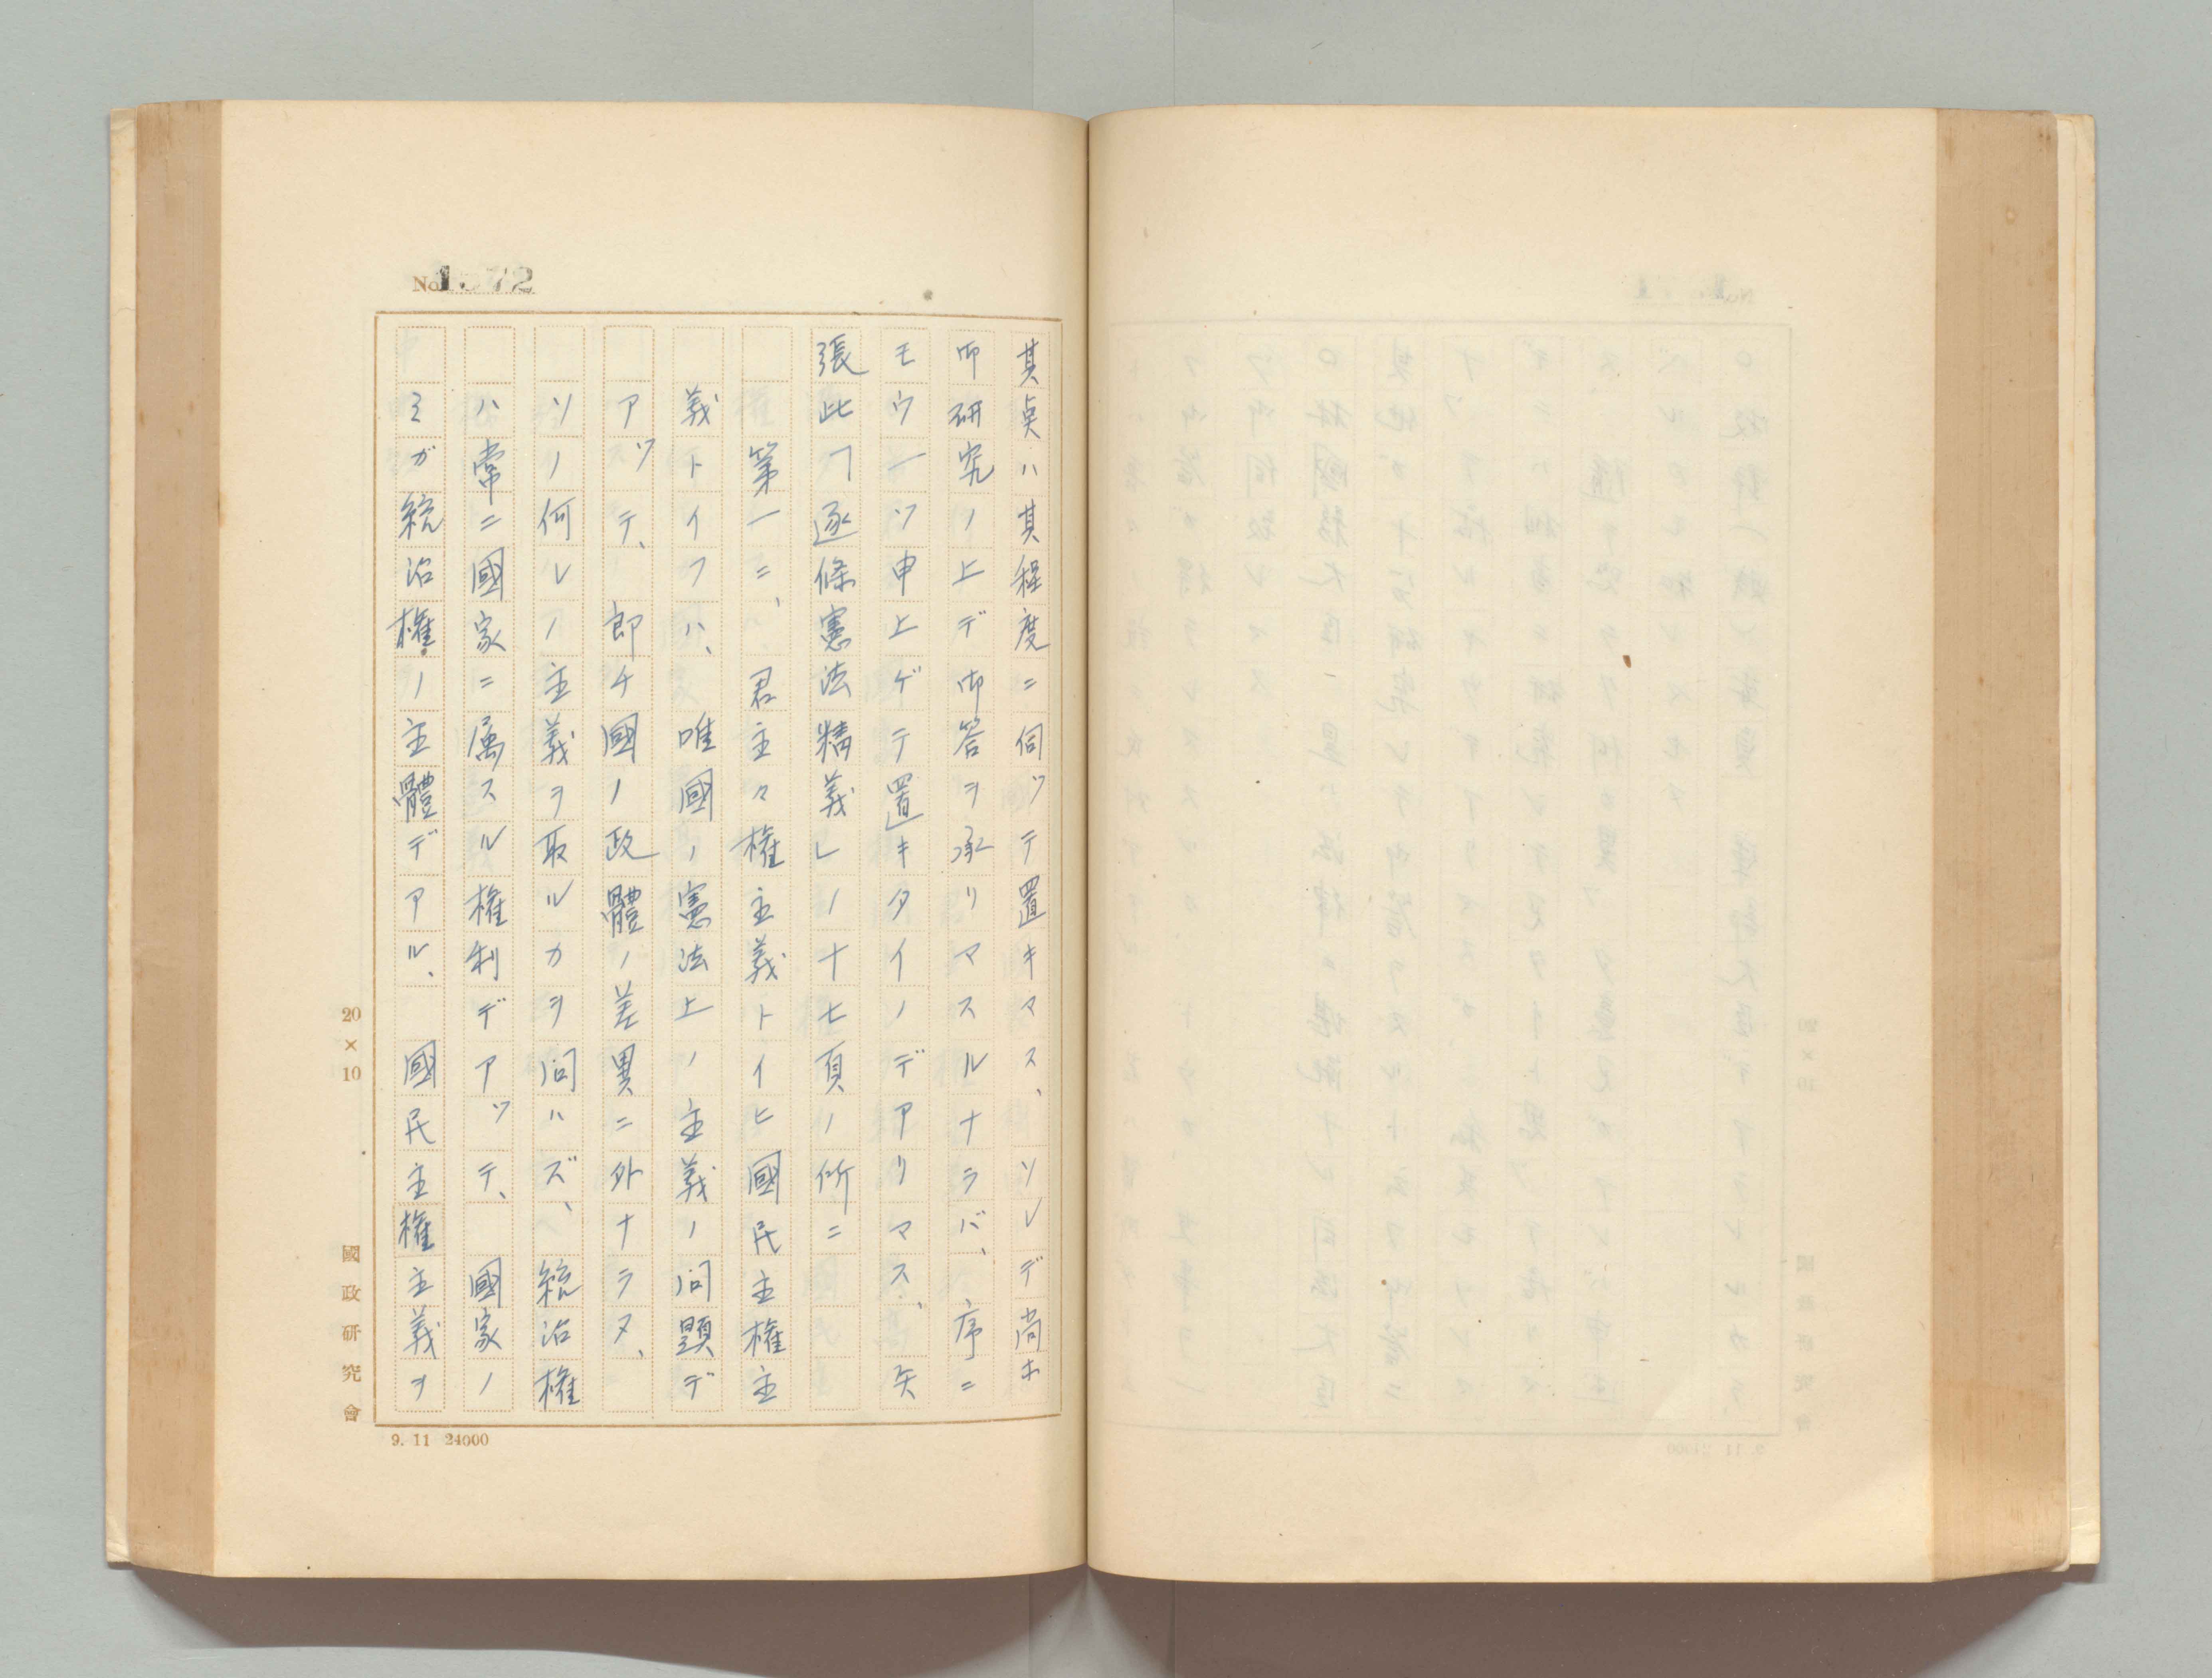 其点ハ其程度ニ伺ッテ置キマス、ソレデ尚ホ
御研究ノ上デ御答ヲ承リマスルナラバ、序ニ
モウ一ツ申上ゲテ置キタイノデアリマス、矢
張此「逐條憲法精義」ノ十七頁ノ所ニ
第一ニ、君主々権主義トイヒ國民主権主
義トイフハ、唯國ノ憲法上ノ主義ノ問題デ
アッテ、即チ國ノ政體ノ差異ニ外ナラヌ、
ソノ何レノ主義ヲ取ルカヲ問ハズ、統治権
ハ常ニ國家ニ属スル権利デアッテ、國家ノ
ミガ統治権ノ主體デアル、國民主権主義ヲ
20×10
國政研究會
9. 11 24000